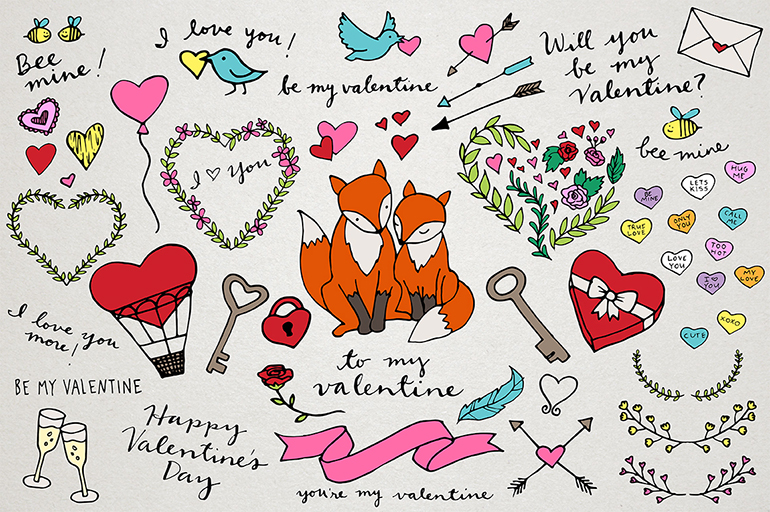 Bee
mine!
I love you!
be my valentine
Will you
be my
Valentine?
bee mine
I ♡ You
HUG
ME
LETS
KISS
BE
MINE
CALL
ME
ONLY
YOU
TRUE
LOVE
TOO
HOT
LOVE
YOU
MY
LOVE
I ♡
YOU
XOXO
CUTE
I love you
more!
to my
valentine
BE MY VALENTINE
Happy
Valentine's
Day
you're my valentine